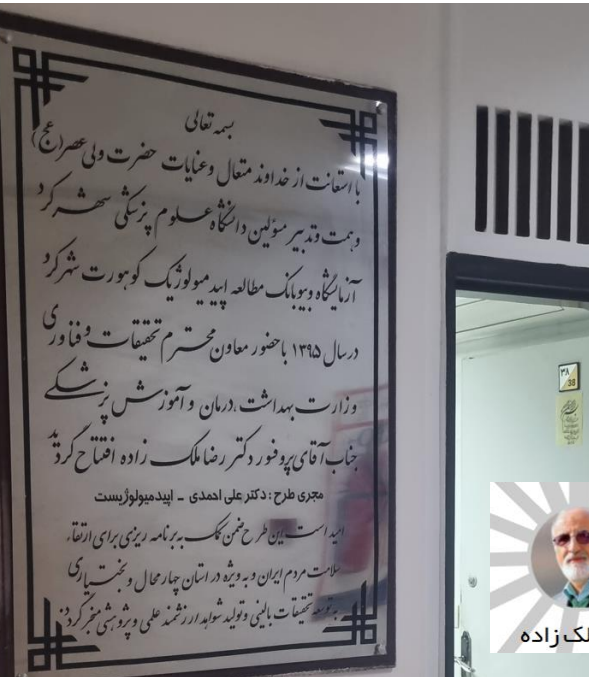 بسمه تعالی
با استعانت از خداوند متعال و عنایات حضرت ولی عصر (عج)
و همت و تدبیر مسئولین دانشگاه علوم پزشکی شهرکرد
آزمایشگاه و بیوبانک مطالعه اپیدمیولوژیک کوهورت شهرکرد
درسال ۱۳۹۵ باحضور معاون محترم تحقیقات و فناوری
وزارت بهداشت ،درمان و آموزش پزشکی
جناب آقای پروفسور دکتر رضا ملک زاده افتتاح گردید
مجری طرح : دکتر علی احمدی - اپیدمیولوژیست
امید است این طرح ضمن کمک به برنامه ریزی برای ارتقاء
سلامت مردم ایران و به ویژه در استان چهارمحال و بختیاری
به توسعه تحقیقات بالینی و تولید شواهد ارزشمند علمی و پژوهشی منجر گردد.
۳۸
38
لک زاده